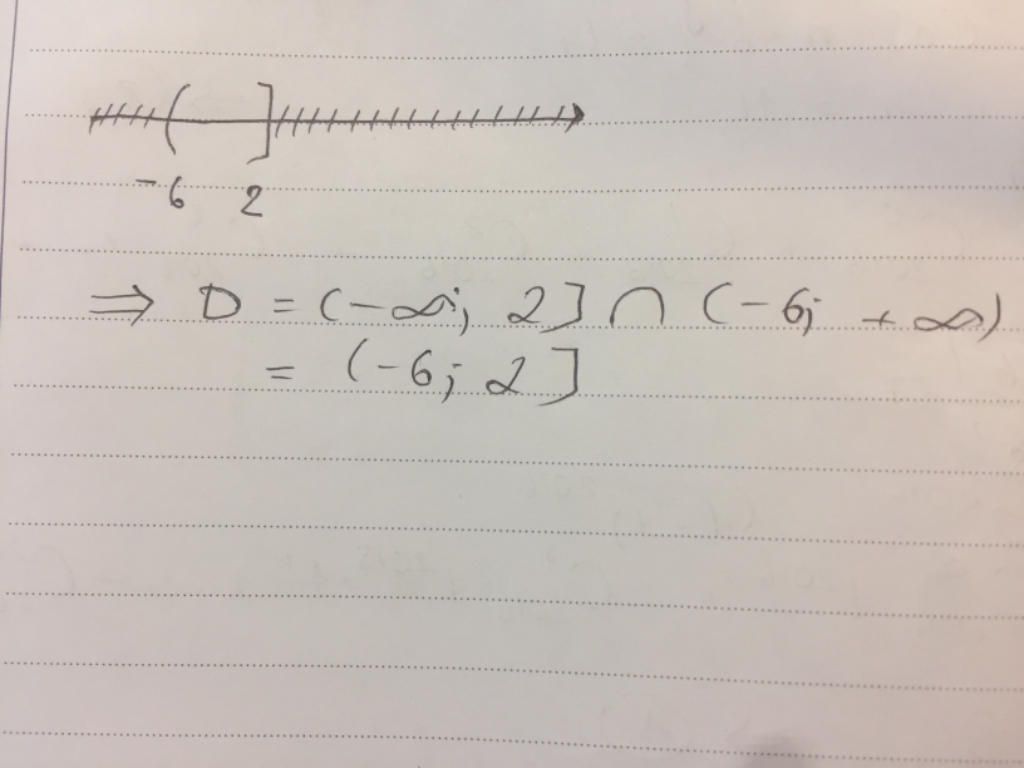 -6 2
⇒ D = (-∞; 2] ∩ (-6; +∞)
= (-6; 2]